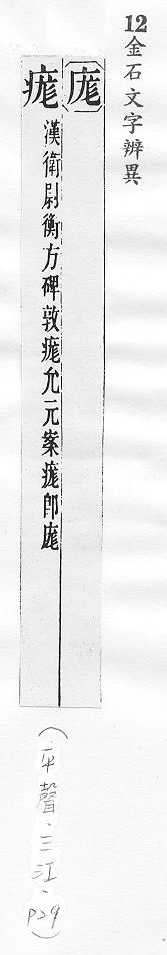 12金石文字辨異
庬
㾧漢衛尉衡方碑敦㾧允元案㾧即庬
(平聲.三江.P29)